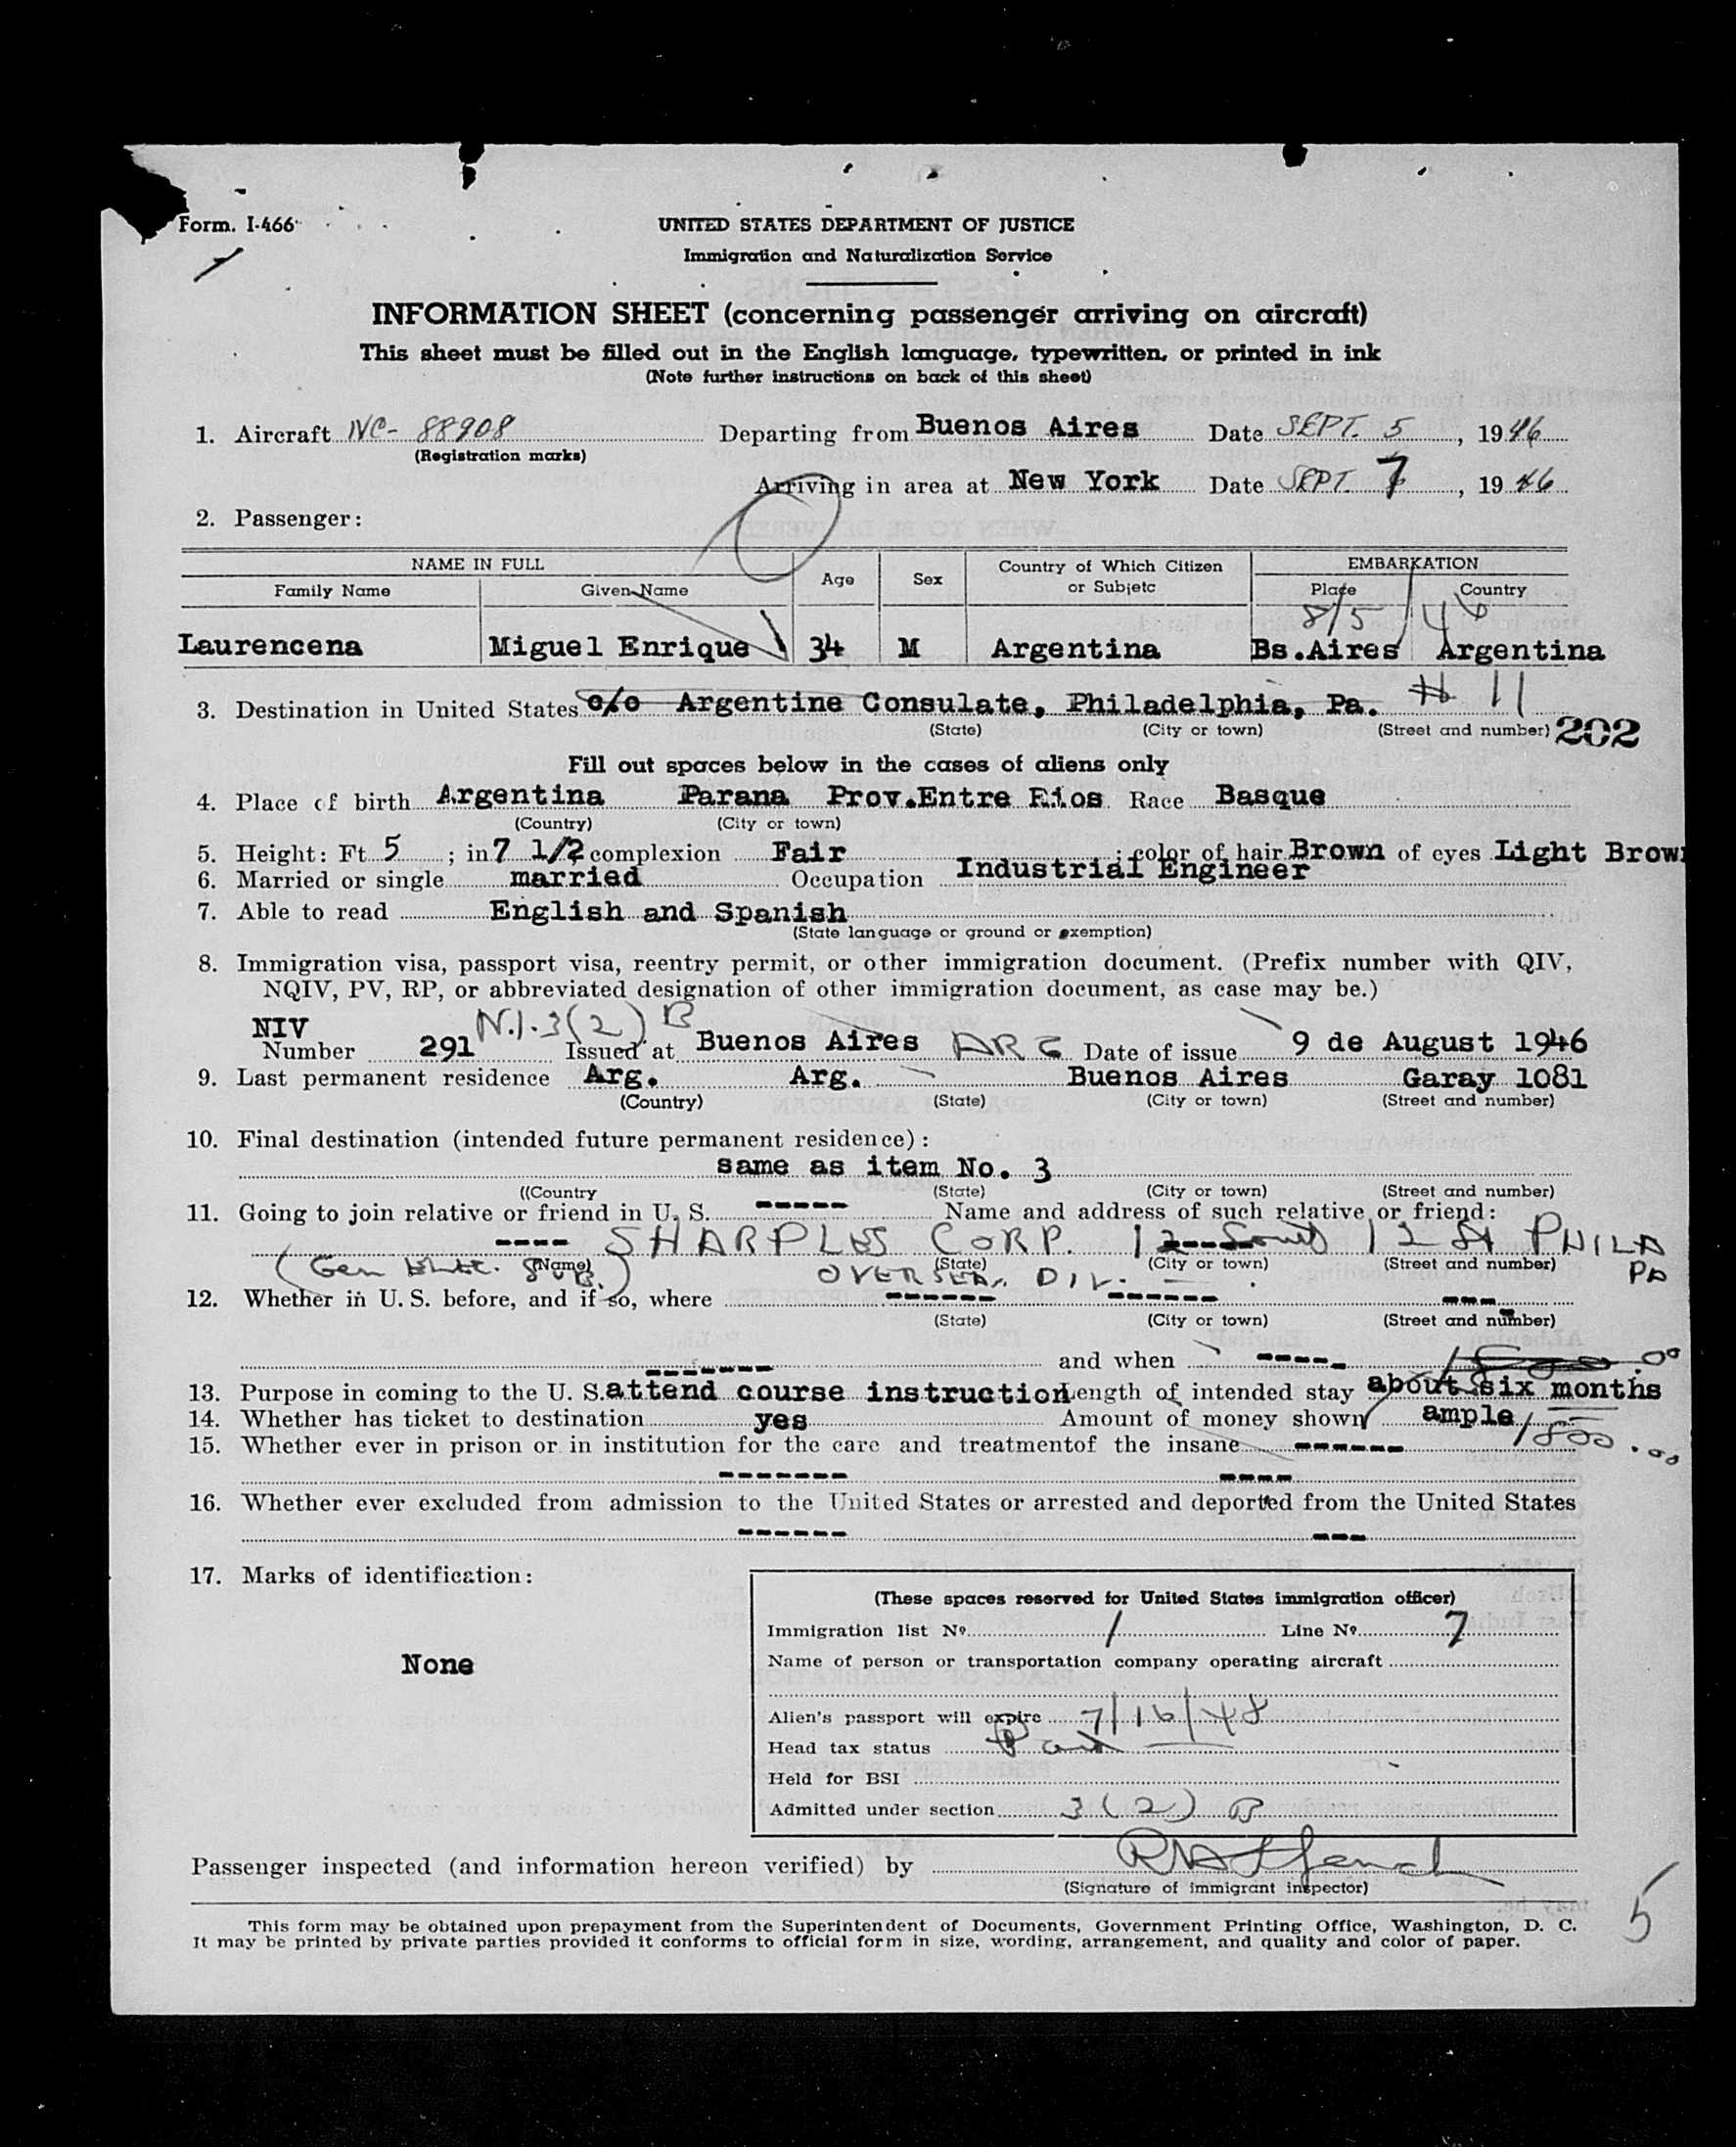 Form. I-466
UNITED STATES DEPARTMENT OF JUSTICE
Immigration and Naturalization Service
INFORMATION SHEET (concerning passenger arriving on aircraft)
This sheet must be filled out in the English language, typewritten, or printed in ink
(Note further instructions on back of this sheet)
1. Aircraft NC- 88908 Departing from Buenos Aires Date SEPT. 5, 1946
(Registration marks)
Arriving in area at New York Date SEPT. 7, 1946
2. Passenger:
NAME IN FULL Age Sex Country of Which Citizen or Subjetc EMBARKATION
Family Name Given Name Place Country
8/5/46
Laurencena Miguel Enrique 34 M Argentina Bs.Aires Argentina
3. Destination in United States c/o Argentine Consulate, Philadelphia, Pa. # 11
(State) (City or town) (Street and number) 202
Fill out spaces below in the cases of aliens only
4. Place of birth Argentina Parana Prov.Entre Rios Race Basque
(Country) (City or town)
5. Height: Ft 5 ; in 7 1/2 complexion Fair ; color of hair Brown of eyes Light Brown
6. Married or single married Occupation Industrial Engineer
7. Able to read English and Spanish
(State language or ground or exemption)
8. Immigration visa, passport visa, reentry permit, or other immigration document. (Prefix number with QIV,
NQIV, PV, RP, or abbreviated designation of other immigration document, as case may be.)
NIV N.I. 3(2) B
Number 291 Issued at Buenos Aires ARG Date of issue 9 de August 1946
9. Last permanent residence Arg. Arg. Buenos Aires Garay 1081
(Country) (State) (City or town) (Street and number)
10. Final destination (intended future permanent residence):
same as item No. 3
((Country (State) (City or town) (Street and number)
11. Going to join relative or friend in U. S. ----- Name and address of such relative or friend:
---- SHARPLES CORP. 12 St PHILA
(Name) (State) (City or town) (Street and number) PA
OVERSEAS DIV.
12. Whether in U. S. before, and if so, where ------ ------ ---
(State) (City or town) (Street and number)
------- and when -----
13. Purpose in coming to the U. S. attend course instruction Length of intended stay about six months
14. Whether has ticket to destination yes Amount of money shown ample 1800.00
15. Whether ever in prison or in institution for the care and treatmentof the insane ------
------- ----
16. Whether ever excluded from admission to the United States or arrested and deported from the United States
------ ---
17. Marks of identification:
None
(These spaces reserved for United States immigration officer)
Immigration list Nº 1 Line Nº 7
Name of person or transportation company operating aircraft
Alien's passport will expire 7/16/48
Head tax status Paid
Held for BSI
Admitted under section 3(2) B
Passenger inspected (and information hereon verified) by
(Signature of immigrant inspector)
This form may be obtained upon prepayment from the Superintendent of Documents, Government Printing Office, Washington, D. C.
It may be printed by private parties provided it conforms to official form in size, wording, arrangement, and quality and color of paper.
5